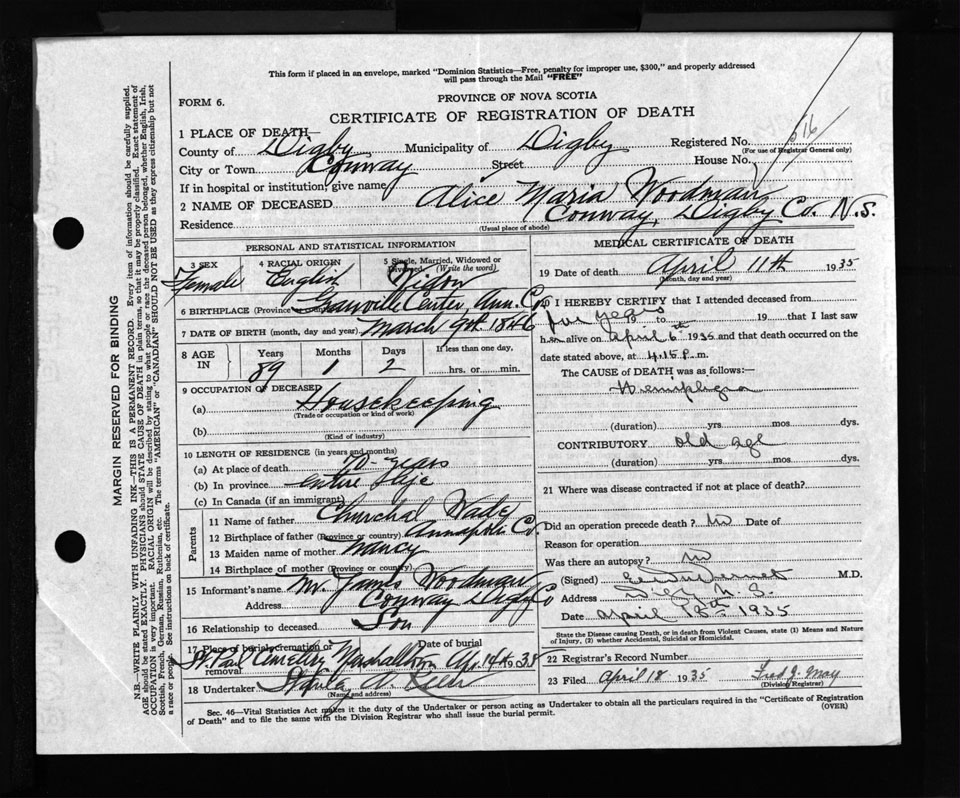 This form if placed in an envelope, marked "Dominion Statistics—Free, penalty for improper use, $300," and properly addressed
will pass through the Mail "FREE"
FORM 6.
PROVINCE OF NOVA SCOTIA
CERTIFICATE OF REGISTRATION OF DEATH
1 PLACE OF DEATH—
County of Digby Municipality of Digby Registered No.
(For use of Registrar General only)
City or Town Conway Street House No.
If in hospital or institution, give name
2 NAME OF DECEASED Alice Maria Woodman
Residence Conway, Digby Co. N.S.
(Usual place of abode)
PERSONAL AND STATISTICAL INFORMATION
3 SEX 4 RACIAL ORIGIN 5 Single, Married, Widowed or Divorced (Write the word)
Female English Widow
6 BIRTHPLACE (Province Granville Center, Ann. Co.
7 DATE OF BIRTH (month, day and year) March 9th 1846
8 AGE IN Years Months Days If less than one day,
89 1 2 hrs. or min.
9 OCCUPATION OF DECEASED
(a) Housekeeping
(Trade or occupation or kind of work)
(b)
(Kind of industry)
10 LENGTH OF RESIDENCE (in years and months)
(a) At place of death 70 years
(b) In province entire life
(c) In Canada (if an immigrant)
Parents
11 Name of father Churchal Wade
12 Birthplace of father (Province or country) Annapolis Co.
13 Maiden name of mother Nancy
14 Birthplace of mother (Province or country)
15 Informant's name Mr. James Woodman
Address Conway Digby Co
16 Relationship to deceased Son
17 Place of burial, cremation or removal Date of burial
St. Paul Cemetery Marshalltown Apr. 14th 1935
18 Undertaker
(Name and address)
MEDICAL CERTIFICATE OF DEATH
19 Date of death April 11th 1935
(Month, day and year)
20 I HEREBY CERTIFY that I attended deceased from
for years 19 to 19 that I last saw
her alive on April 6th 1935 and that death occurred on the
date stated above, at 4.15 p.m.
The CAUSE OF DEATH was as follows:—
Hemiplegia
(duration) yrs mos dys.
CONTRIBUTORY old age
(duration) yrs mos dys.
21 Where was disease contracted if not at place of death?
Did an operation precede death? no Date of
Reason for operation
Was there an autopsy? no
(Signed) M.D.
Address Digby N.S.
Date April 13th 1935
State the Disease causing Death, or in death from Violent Causes, state (1) Means and Nature
of Injury, (2) whether Accidental, Suicidal or Homicidal.
22 Registrar's Record Number
23 Filed April 18 1935 Fred J. May
(Division Registrar)
Sec. 46—Vital Statistics Act makes it the duty of the Undertaker or person acting as Undertaker to obtain all the particulars required in the "Certificate of Registration
of Death" and to file the same with the Division Registrar who shall issue the burial permit.
(OVER)
MARGIN RESERVED FOR BINDING
N.B.—WRITE PLAINLY WITH UNFADING INK—THIS IS A PERMANENT RECORD. Every item of information should be carefully supplied.
AGE should be stated EXACTLY. PHYSICIANS should STATE CAUSE OF DEATH in plain terms, so that it may be properly classified. Exact statement of
OCCUPATION is very important. RACIAL ORIGIN will be described by stating to what people or race the deceased person belonged, whether English, Irish,
Scottish, French, German, Russian, Ruthenian, etc. The terms "AMERICAN" or "CANADIAN" SHOULD NOT BE USED as they express citizenship but not
a race or people. See instructions on back of certificate.